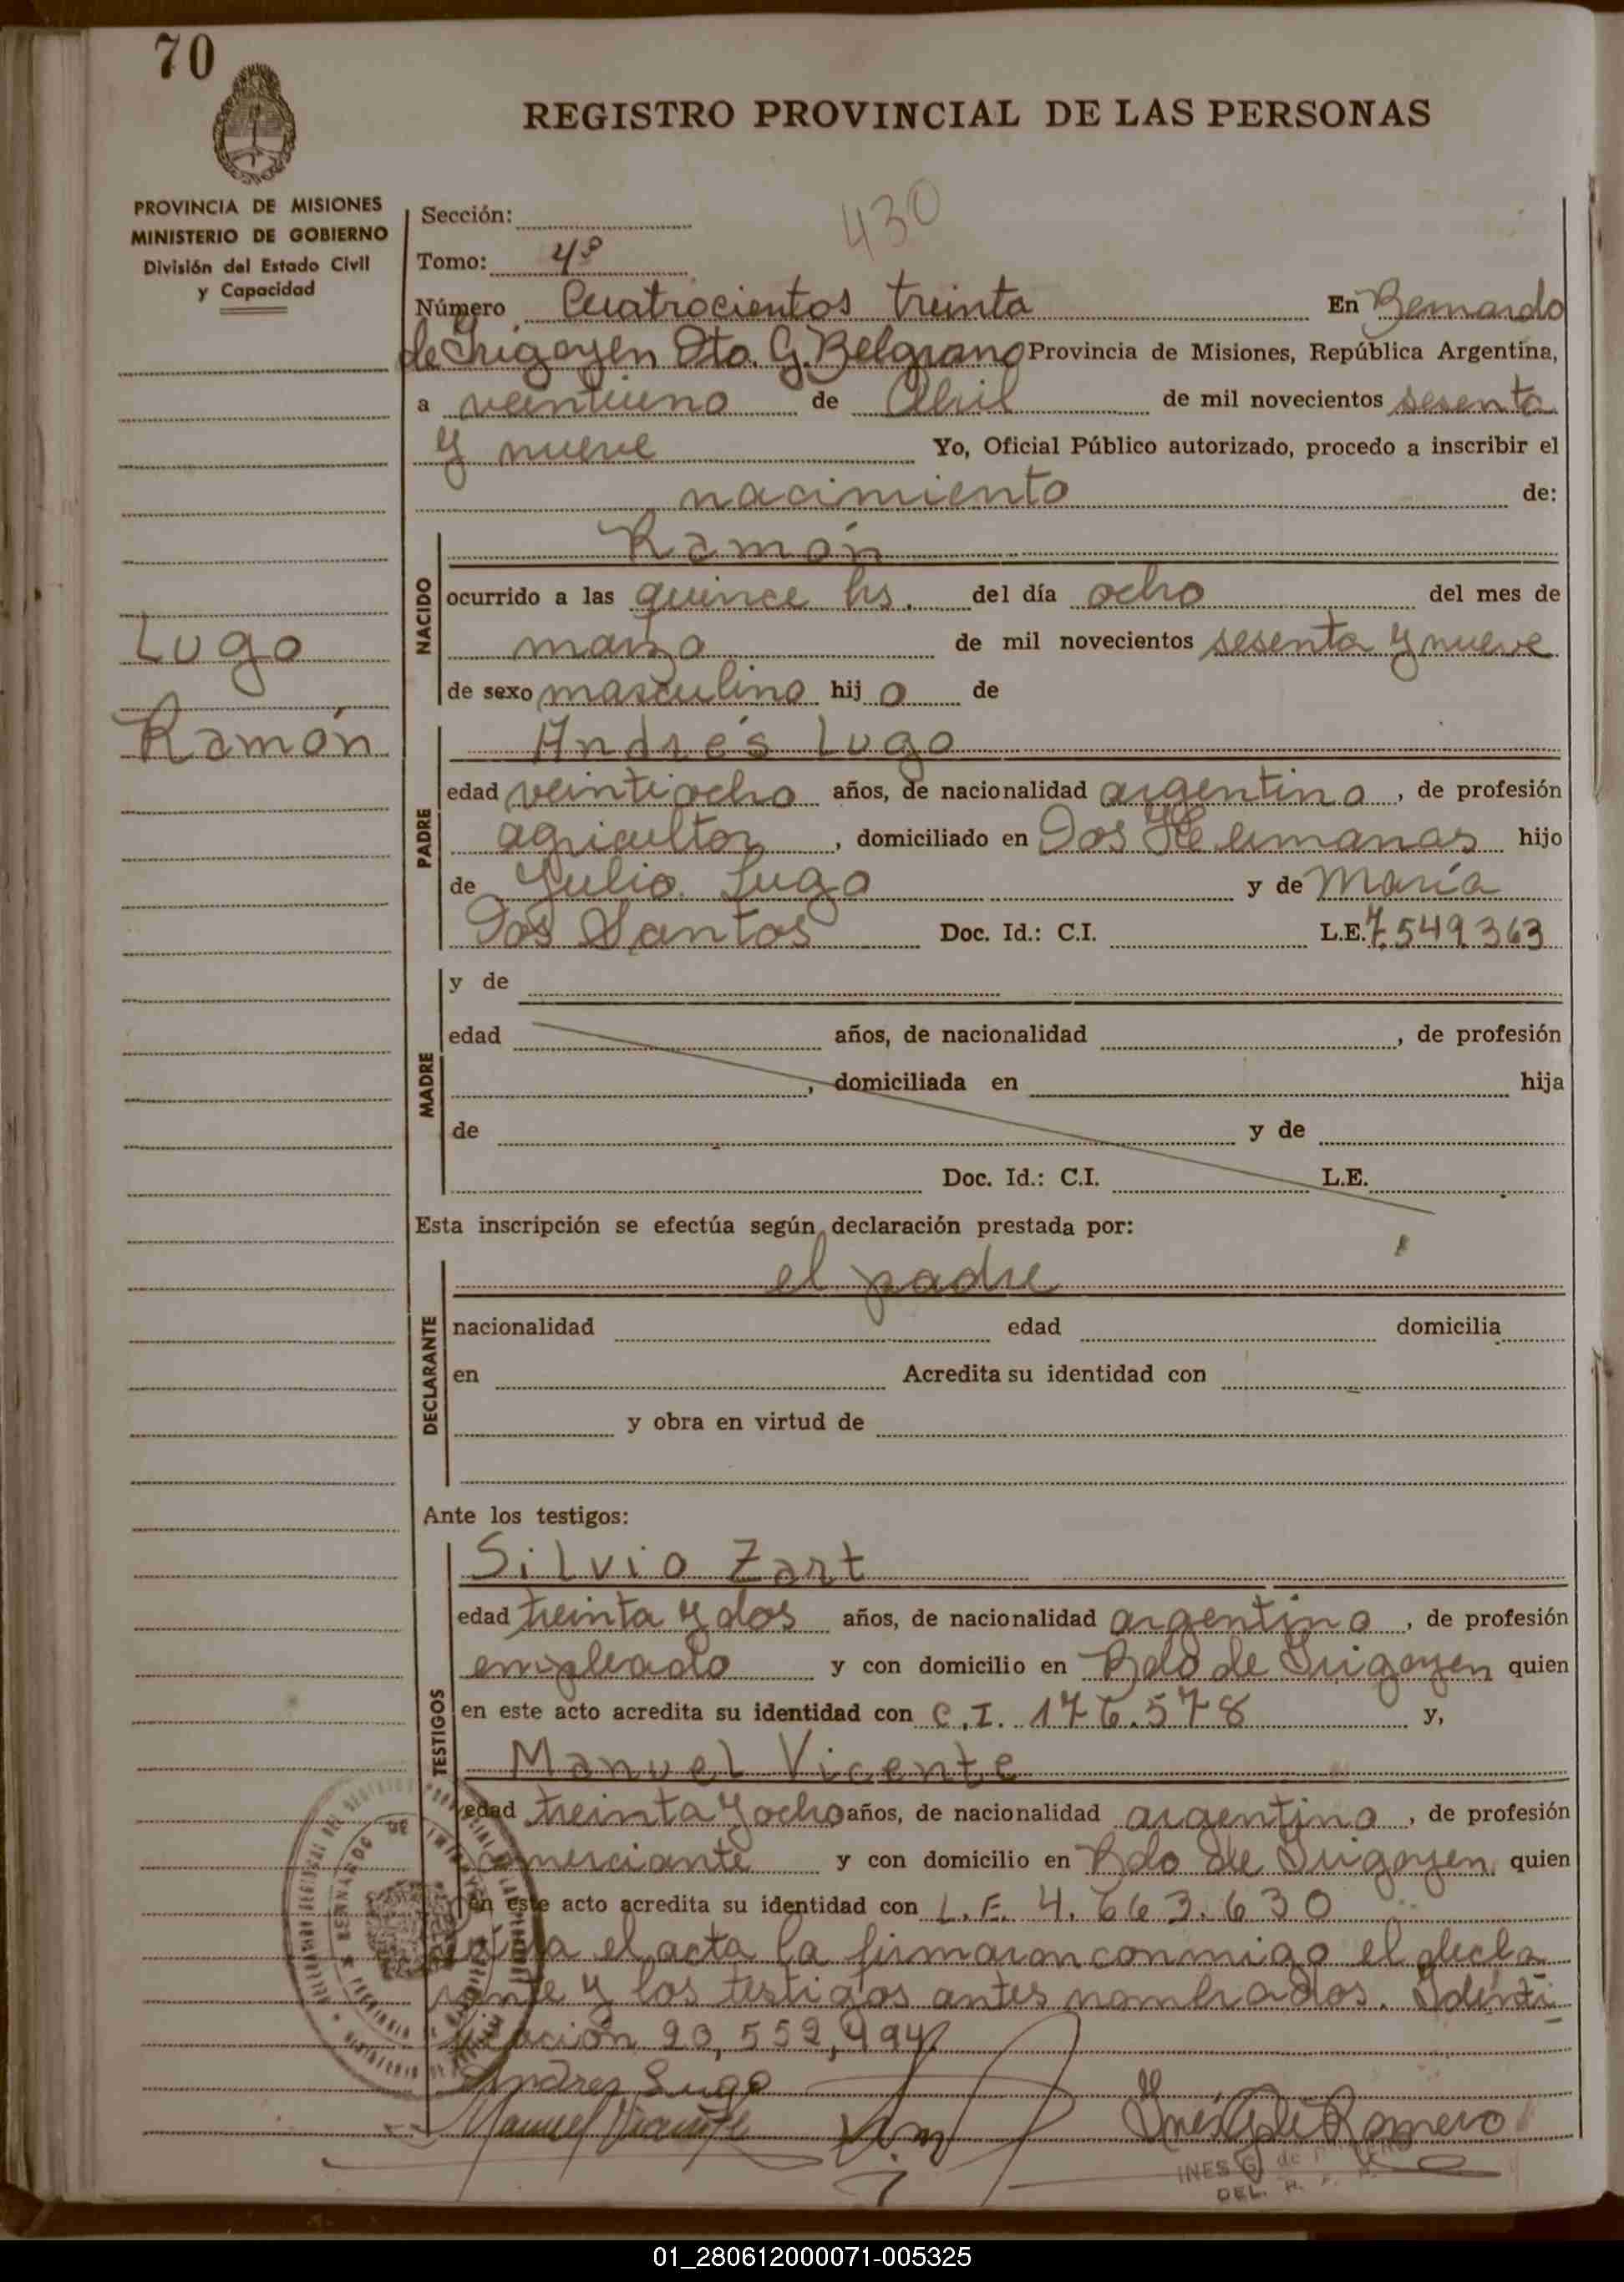 70
REGISTRO PROVINCIAL DE LAS PERSONAS
PROVINCIA DE MISIONES
MINISTERIO DE GOBIERNO
División del Estado Civil
y Capacidad
Sección:
430
Tomo: 4º
Número Cuatrocientos treinta En Bernardo
de Irigoyen Dto. G. Belgrano Provincia de Misiones, República Argentina,
a veintiuno de Abril de mil novecientos sesenta
y nueve Yo, Oficial Público autorizado, procedo a inscribir el
nacimiento de:
NACIDO
Ramón
ocurrido a las quince hs. del día ocho del mes de
marzo de mil novecientos sesenta y nueve
de sexo masculino hijo de
Lugo
Ramón
PADRE
Andrés Lugo
edad veintiocho años, de nacionalidad argentina, de profesión
agricultor, domiciliado en Dos Hermanas hijo
de Julio Lugo y de María
Dos Santos Doc. Id.: C.I. L.E. 7.549.363
MADRE
y de
edad años, de nacionalidad , de profesión
, domiciliada en hija
de y de
Doc. Id.: C.I. L.E.
Esta inscripción se efectúa según declaración prestada por:
DECLARANTE
el padre
nacionalidad edad domicilia
en Acredita su identidad con
y obra en virtud de
Ante los testigos:
TESTIGOS
Silvio Zart
edad treinta y dos años, de nacionalidad argentino, de profesión
empleado y con domicilio en Bdo de Irigoyen quien
en este acto acredita su identidad con C.I. 176.578 y,
Manuel Vicente
edad treinta y ocho años, de nacionalidad argentino, de profesión
comerciante y con domicilio en Bdo de Irigoyen quien
en este acto acredita su identidad con L.E. 4.663.630
el acta la firmaron conmigo el decla
rante y los testigos antes nombrados. Identi
ficación 20,552,494
Andres Lugo
Manuel Vicente
Inés G. de Romero
INES G. de
DEL. R. P. P.
BERNARDO DE
01_280612000071-005325